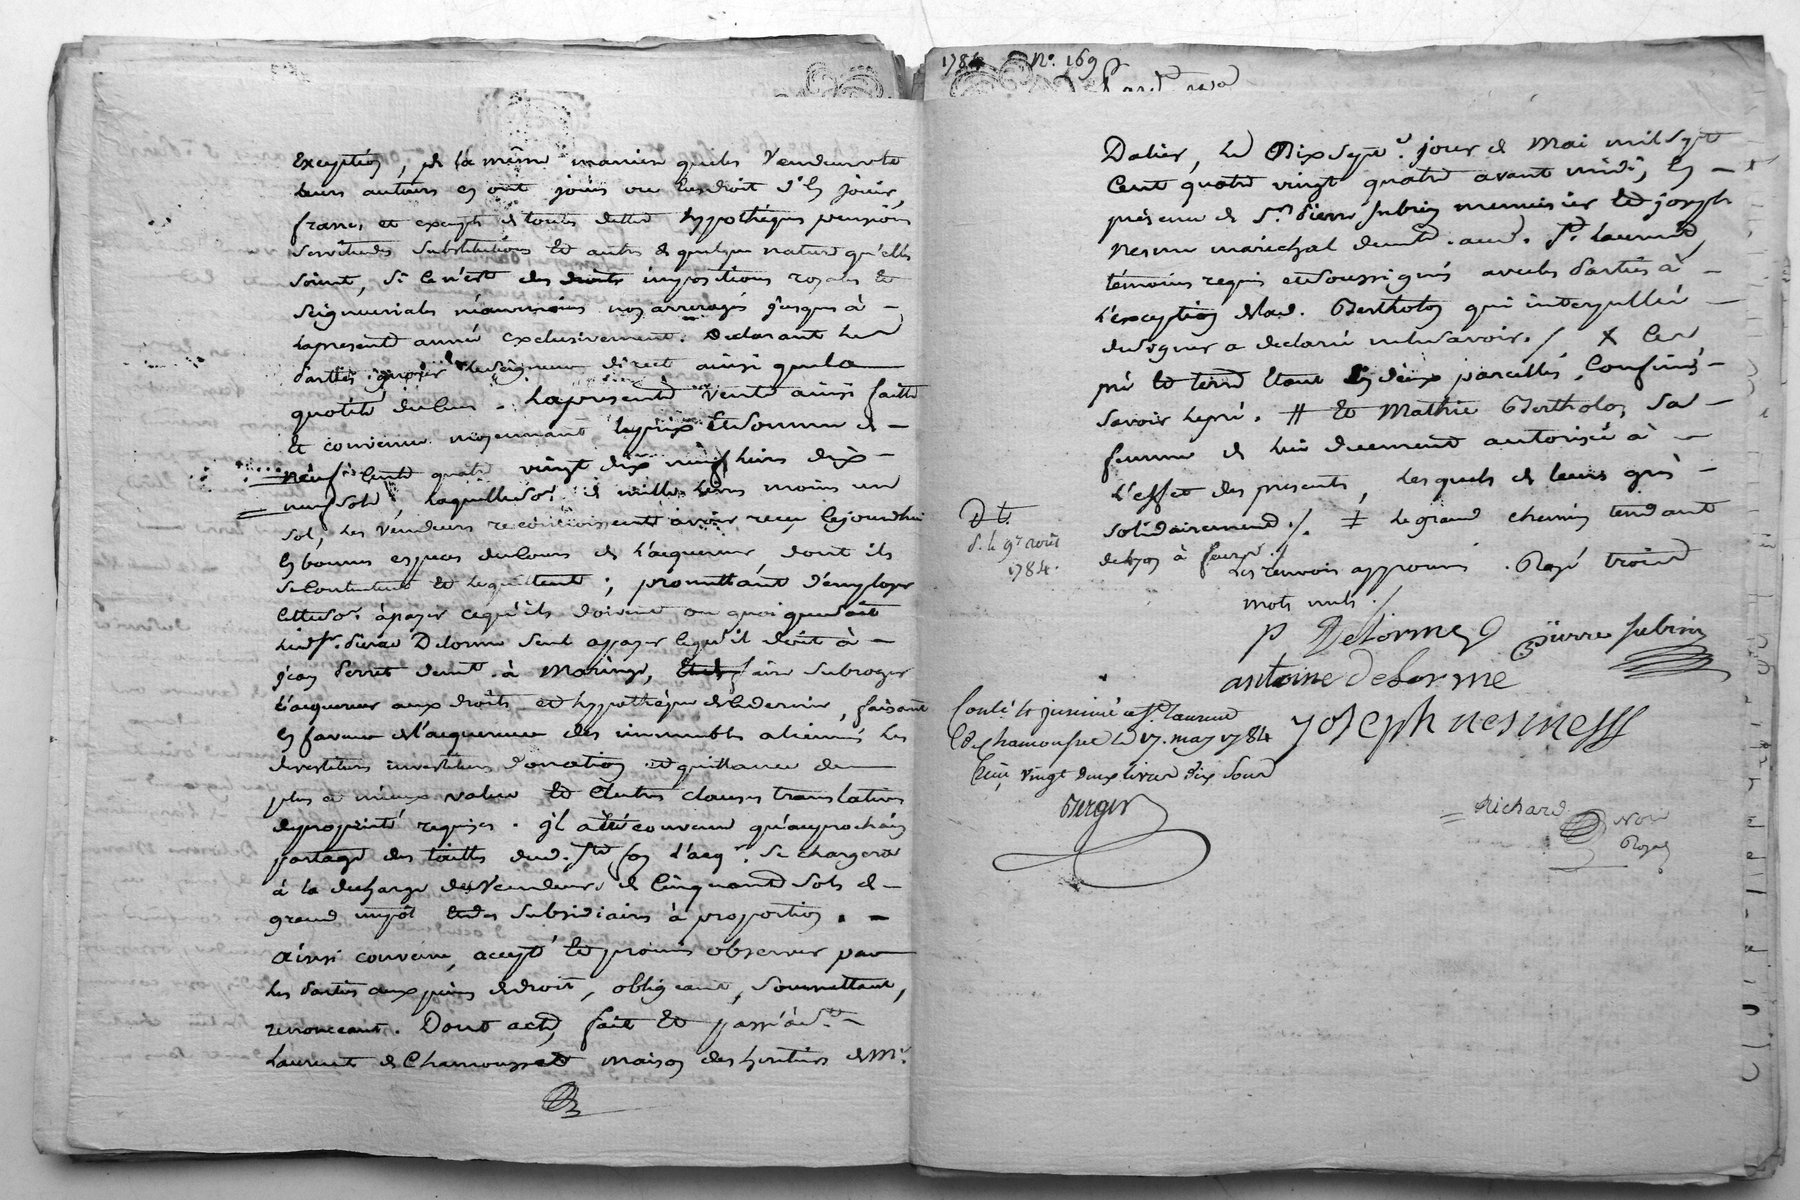 exception, et de la même maniere que les Vendeurs et
leurs auteurs en ont joüis ou eu droit d'en joüir,
francs et exempts de toutes dettes hypothéques pensions
servitudes substitutions et autres de quelque nature qu'elles
soient, si ce n'est des droits impositions royales et
seigneuriales néanmoins non arreragés jusques à -
la presente année exclusivement. Declarant les
parties ignorer le seigneur direct ainsi que la
quotité du cens. La presente vente ainsi faitte
et convenue moyennant le prix et somme de -
neuf cents quatre vingt dix neuf livres dix -
neuf sols, laquelle so. de mille livres moins un
sol, les vendeurs reconnoissent avoir reçu cejourdhui
en bonnes especes du cours de l'acquereur dont ils
se contentent et le quittent; promettant d'employer
cette so. à payer ce qu'ils doivent ou quoi que soit
led. sr. Pierre Delorme seul a payer ce qu'il doit à -
jean Perret demt. à Maringe, faire subroger
l'acquereur aux droits et hypothéque de ce dernier, faisant
en faveur de l'acquereur des immeubles alienés les
devestitures investitures donation et quittance de
plus a mieux value et autres clauses translatives
de proprieté requises. Il a été convenu qu'au prochain
partage des tailles dud. St. foy l'acqr. se chargera
à la decharge des Vendeurs de Cinquante sols de -
grand impôt et des subsidiaires à proportion. -
ainsi convenu, accepté et promis observer par
les parties aux peines de droit, obligeant, soumettant,
renonceant. Dont acte, fait et passé à St. -
Laurent de Chamousset maison des heritiers de Mr.
1784 No. 169
Dalier, le Dix sept. jour de Mai mil sept
Cent quatre vingt quatre avant midi, en -
présence de Sr. Pierre Subrin menuisier et joseph
nesme maréchal demt. aud. St. Laurent,
témoins requis et soussignés avec les parties à -
l'exception de lad. Bertholon qui interpellée -
de signer a declaré ne le savoir. / X Ces
pré et terre étant en deux parcelles, Confinés -
savoir le pré. # et Mathie Bertholon sa -
femme de lui duement autorisée à -
l'effet des presents, lesquels de leurs grés -
solidairement ./. ‡ le grand chemin tendant
de lyon à feurs ./.
les renvois approuvés. Rayé trois
mots nuls. /
D t.
d. le 9e. août
1784.
P Delorme Pierre subrin
antoine delorme
joseph nesme
Conté. et insinué a St. Laurent
de Chamousset le 17. may 1784
Reçu vingt deux livres dix sous
Berger
Richard Nore
Royal